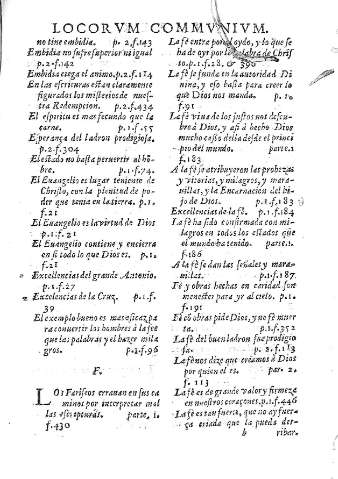 LOCORVM COMMVNIVM.
no tine embidia. p.2.f.143
Embidia no sufre superior ni igual
p.2.f.142
Embidia ciega el animo. p.2.f.114
En las escrituras estan claramente
figurados los misterios de nues-
tra Redempcion. p.2.f.434
El espiritu es mas fecundo que la
carne. p.1.f.55
Esperança del ladron prodigiosa.
p.2.f.304
El estado no basta peruertir al hō-
bre. p.1.f.74.
El Euangelio es lugar teniente de
Christo, con la plenitud de po-
der que tenia en la tierra. p.1.
f.21
El Euangelio es la virtud de Dios
p.1.f.21
El Euangelio contiene y encierra
en si todo lo que Dios es. p.1.
f.21
Excelencias del grande Antonio.
p.1.f.27
Excelencias de la Cruz. p.1.f.
39
El exemplo bueno es mas eficaz pa
ra conuertir los hombres à la fee
que las palabras y el hazer mila
gros. p.1.f.96
F.
LOs Fariseos errauan en sus ca
minos por interpretar mal
las escripturas. parte, 1.
f.430
La fè entre por el oydo, y lo que se
ha de oyr por la palabra de Chris
to. p.1.f.28, & 390
La fè se funda en la autoridad Di
uina, y eso basta para creer lo
que Dios nos manda. p.10
f.91
La fè viua de los justos nos descu-
bre à Dios, y assi à hecho Dios
mucho caso della desde el princi
pio del mundo. parte.1.
f.183
A la fè se atribuyeron las probezas
y vitorias, y milagros, y mara-
uillas, y la Encarnacion del hi-
jo de Dios. p.1.f.183
Excelencias de la fè. p.1.f.184
La fè ha sido confirmada con mi-
lagros en todos los estados que
el mundo ha tenido. parte.1.
f.186
A la fè se dan las señales y mara-
uillas. p.1.f.187.
Fè y obras hechas en caridad son
menester para yr al cielo. p.1.
f.191
Fè cō obras pide Dios, y no fè muer
ta. p.1.f.352
La fè del buen ladron fue prodigio
sa. p.2.f.113
La fè nos dize que creamos à Dios
por quien el es. par. 2.
f.113
La fè es de grande valor y firmeza
en nuestros coraçones. p.1.f.446
La fè es tan fuerte, que no ay fuer-
ça criada que la pueda der-
b ribar.